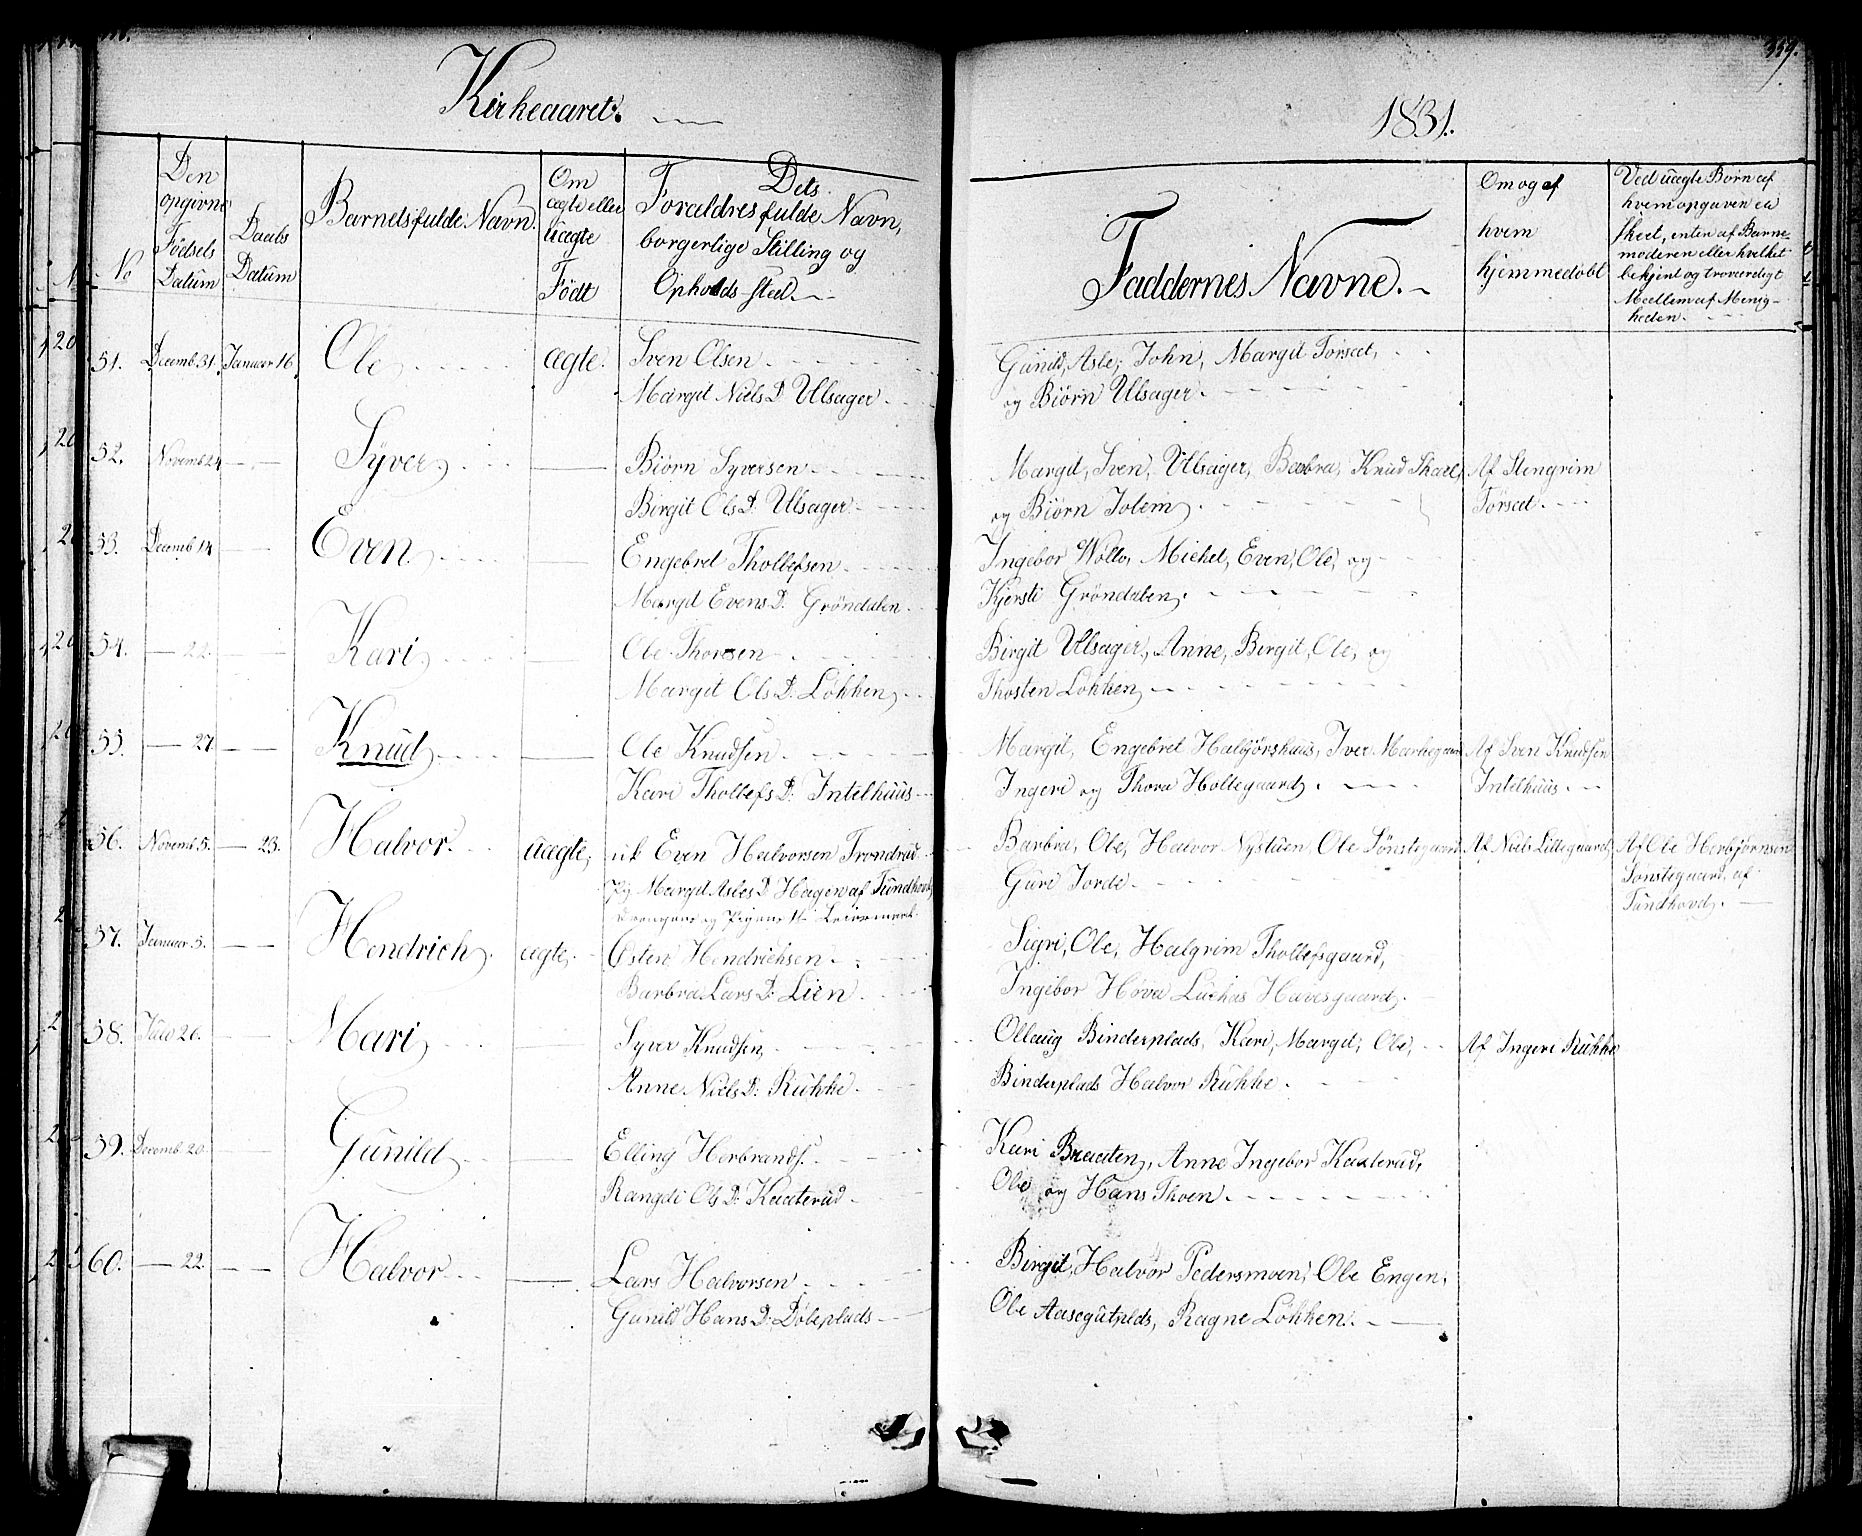 Kirkeaaret.
1831.
359.
No
Den
opgivne
Födsels
Datum
Daabs
Datum
Barnets fulde Navn.
Om
ægte eller
Uægte
Födt
Dets
Foraldres fulde Navn,
borgerlige Stilling og
Opholds-sted.
Faddernes Navne.
Om og af
hvem
hjemmedöbt
Ved uægte Börn af
hvem opgaven er
skeet, enten af Barne-
moderen eller hvilket
bekjent og troverdigt
Medlem af Menig-
heden.
51. Decemb. 31. Januar 16. Ole ægte. Sven Olsen
Margit Niels D. Ulsager
Gunild, Asle, John, Margit Torsæt,
og Biörn Ulsager.
52. Novemb. 24 Syver Biörn Syversen
Birgit Ols D. Ulsager
Margit, Sven, Ulsager, Barbra, Knud Skare, Af Stengrim
og Biörn Jolem Torsæt.
53. Decemb. 14 Even Engebret Thollefsen
Margit Evens D. Gröndalen
Ingebor Wollo, Michel, Even, Ole, og
Kjersti Gröndalen.
54. 22. Kari Ole Thorsen
Margit Ols D. Lökken
Birgit Ulsager, Anne, Birgit, Ole, og
Thosten Lökken
55. 27 Knud Ole Knudsen
Kari Thollefs D. Intelhuus
Margit, Engebret Halbjörshuus, Iver Af Sven Knudsen
Ingeri og Thora Holtegaard. Intelhuus.
56. Novemb. 5. 23. Halvor. uægte, uk Even Halvorsen Trondrud
Pg Margit Asles D. Hagen af Tundhovd,
Barbra, Ole, Halvor Nystuen, Ole Sönstegaard Af Niels Lillegaard, Af Ole Herbjörnsen
Guri Jorde. Sönstegaard, af
Tundhovd.
57. Januar 5. Hendrich ægte, Östen Hendrichsen
Barbra Lars D. Lien
Sigri, Ole, Halgrim Thollefsgaard,
Ingebor Hova Luchas Haresgaard.
58. 26. Mari Syver Knudsen
Anne Niels D. Rukke.
Ollaug Binderplads, Kari, Margit, Ole, Af Ingeri Rukke
Binderplads Halvor Rukke.
59. Decemb. 20. Gunild Elling Herbrands.
Rangdi Ols D. Kaaterud
Kari Braaten, Anne Ingebor Kaaterud,
Ole og Hans Thoen
60. 22. Halvor Lars Halvorsen
Gunild Hans D. Döleplads
Birgit, Halvor Pedersmoen, Ole Engen,
Ole Ragne Lökken.